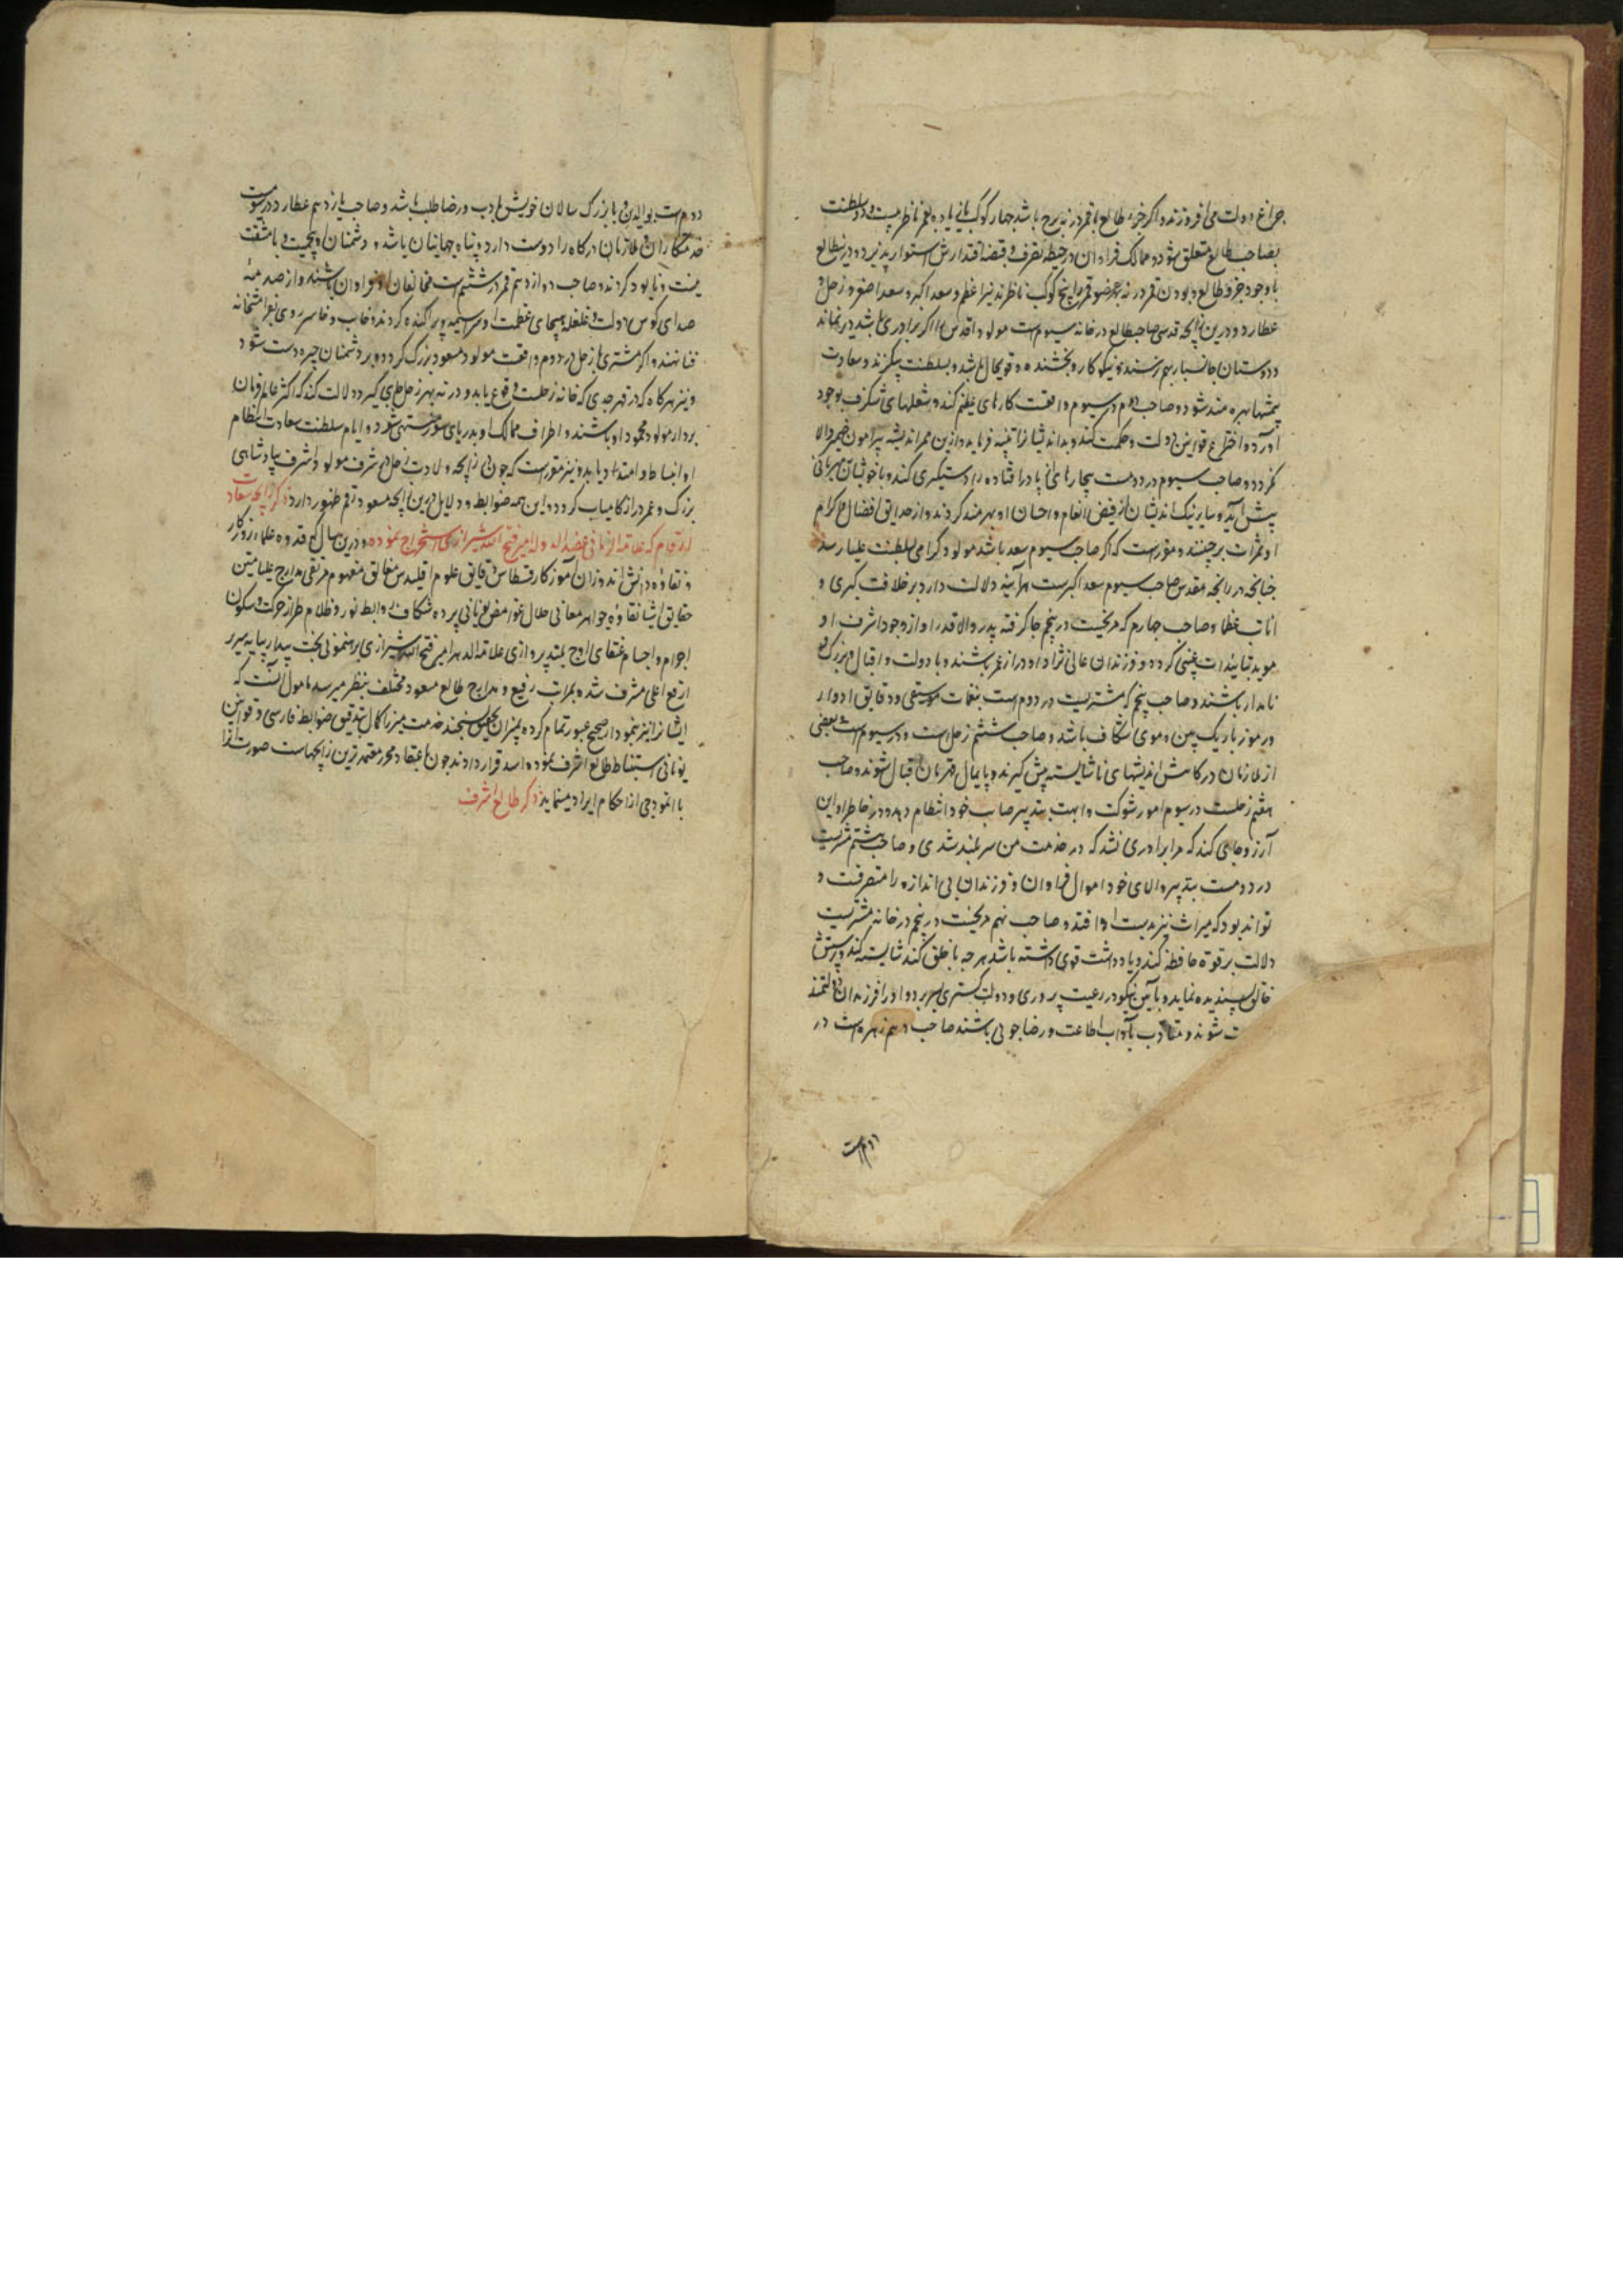 چراغ دولت می افروزند و اگر جزء طالع با قمر در نه برج باشد چهار کوکب یا زیاده بقمر ناظر دولت و سلطنت
بصاحب طالع متعلق شود و ممالک فراوان در حیطه تصرف و قبضه اقتدارش استوار پذیرد و درین طالع
با وجود جزو طالع و بودن قمر در نه بهر خود پنج کوکب ناظرند نیر اعظم و سعد اکبر و سعد اصغر و زحل و
عطارد و درین زایجه قدسی صاحب طالع در خانه سیوم است مولود اقدس را اگر برادری باشد در نماند
و دوستان جانسپار بهم رسند و نیکو کار و بخشنده و قوی حال باشد و بسلطنت پیکرند و سعادت
بهره مند شود و صاحب دوم در سیوم واقعست کارهای عظیم کند و شغلهای شگرف بوجود
آورد و اختراع قوانین دولت و حکمت کند و بداندیشانرا تنبیه فرماید و ازین ممر اندیشه پیرامون ضمیر والا
نگردد و صاحب سیوم در دومست بیچارهای از پا در افتاده را دستگیری کند و با خویشان مهربانی
پیش آید و سایر نیک اندیشان از فیض انعام و احسان او بهره مند گردند و از حدایق افضال و اکرام
او ثمرات برچینند و مقررست که اگر صاحب سیوم سعد باشد مولود گرامی بسلطنت علیا رسد
چنانچه در زایجه مقدس صاحب سیوم سعد اکبرست هرآینه دلالت دارد بر خلافت کبری و
انابت عظما و صاحب چهارم که مریخست در پنجم جا گرفته پدر والاقدر او از وجود اشرف او
موید بتائیدات غیبی گردد و فرزندان عالی نژاد او دراز عمر باشند و با دولت و اقبال و بزرگ و
نامدار باشند و صاحب پنجم که مشتریست در دوم است بنغمات موسیقی و دقایق ادوار
و رموز باریک بین و موی شکاف باشد و صاحب ششم زحل است و در سیوم است بعضی
از ملازمان درگاهش اندیشهای ناشایسته پیش گیرند و پایمال قهرمان اقبال شوند و صاحب
هفتم زحلست در سیوم امور شوکت و ابهت بتدبیر صایب خود انتظام دهد و در خاطر او این
آرزو جای کند که مرا برادری نشد که در خدمت من سربلند شدی و صاحب هشتم مشتریست
در دومست بتدبیر والای خود اموال فراوان و فرزندان بی اندازه را متصرفست و
تواند بود که میراث نیز بدست او افتد و صاحب نهم مریخست در پنجم در خانه مشتریست
دلالت بر قوة حافظه کند و یادداشت قوی داشته باشد هر چه با خلق کند شایسته کند و پرستش
خالق پسندیده نماید و بآیین نیکو در رعیت پروری و دولت گستری بسر برد و او را فرزندان دولتمند
شوند و متادب بآداب اطاعت و رضاجویی باشند صاحب دهم زهره است در
دوم است
دوم است بوالدین و با بزرگ سالان خویش با ادب و رضا طلب باشد و صاحب یازدهم عطارد در سیومست
خدمتکاران و ملازمان درگاه را دوست دارد و پناه جهانیان باشد و دشمنان او بجمعیت و با مشقت
نیست و نابود گردند و صاحب دوازدهم قمر در ششم است مخالفان او فراوان باشند و از صدمه
صدای کوس دولت و غلغله هیجای عظمت او سراسیمه و پراکنده گردند و خایب و خاسر روی بفرامشخانه
فنا نهند و اگر مشتری با زحل در دوم واقعست مولود مسعود بزرگ گردد و بر دشمنان چیره دست شود
و نیز هرگاه که در قمر جدی که خانه زحلست وقوع یابد و در نه بهر زحل جای گیرد دلالت کند که اکثر عالم فرمان
بردار مولود محمود او باشند و اطراف ممالک او بدریای شور منتهی شود و ایام سلطنت سعادت انتظام
او انبساط و امتداد یابد و نیز مقررست که چون در زایجه ولادت زحل در شرف مولود اشرف بپادشاهی
بزرگ و عمر دراز کامیاب گردد و این همه ضوابط و دلایل درین زایجه مسعود رقم ظهور دارد ذکر زایجه سعادت
ارتقام که علامة الزمانی عضد الدوله امیر فتح الله شیرازی استخراج نموده و درین سال که قدوه علماء روزگار
و نقاوه دانش اندوزان آموزگار قسطاس دقایق علوم اقلیدس مغالق مفهوم مرتقی مدارج علیا متین
حقایق اشیا نقاوه جواهر معانی حلال غوامض یونانی پرده شکاف روابط نور و ظلام طراز حرکت و سکون
اجرام و اجسام عنقای اوج بلند پروازی علامة الدهر امیر فتح الله شیرازی برهنمونی بخت بیدار بپایه سریر
ارفع اعلی مشرف شده بمراتب رفیع و مدارج طالع مسعود مختلف بنظر میرسد مامول آنست که
ایشانرا نیز بنمودار صحیح عبور تمام کرده بمیزان تحقیق سنجند خدمت میر را کمال تدقیق ضوابط فارسی و قوانین
یونانی استنباط طالع اشرف نموده اسد قرار دادند چون باعتقاد محرر معتمدترین زایجهاست صورت آنرا
با انموذجی از احکام ایراد مینماید ذکر طالع اشرف